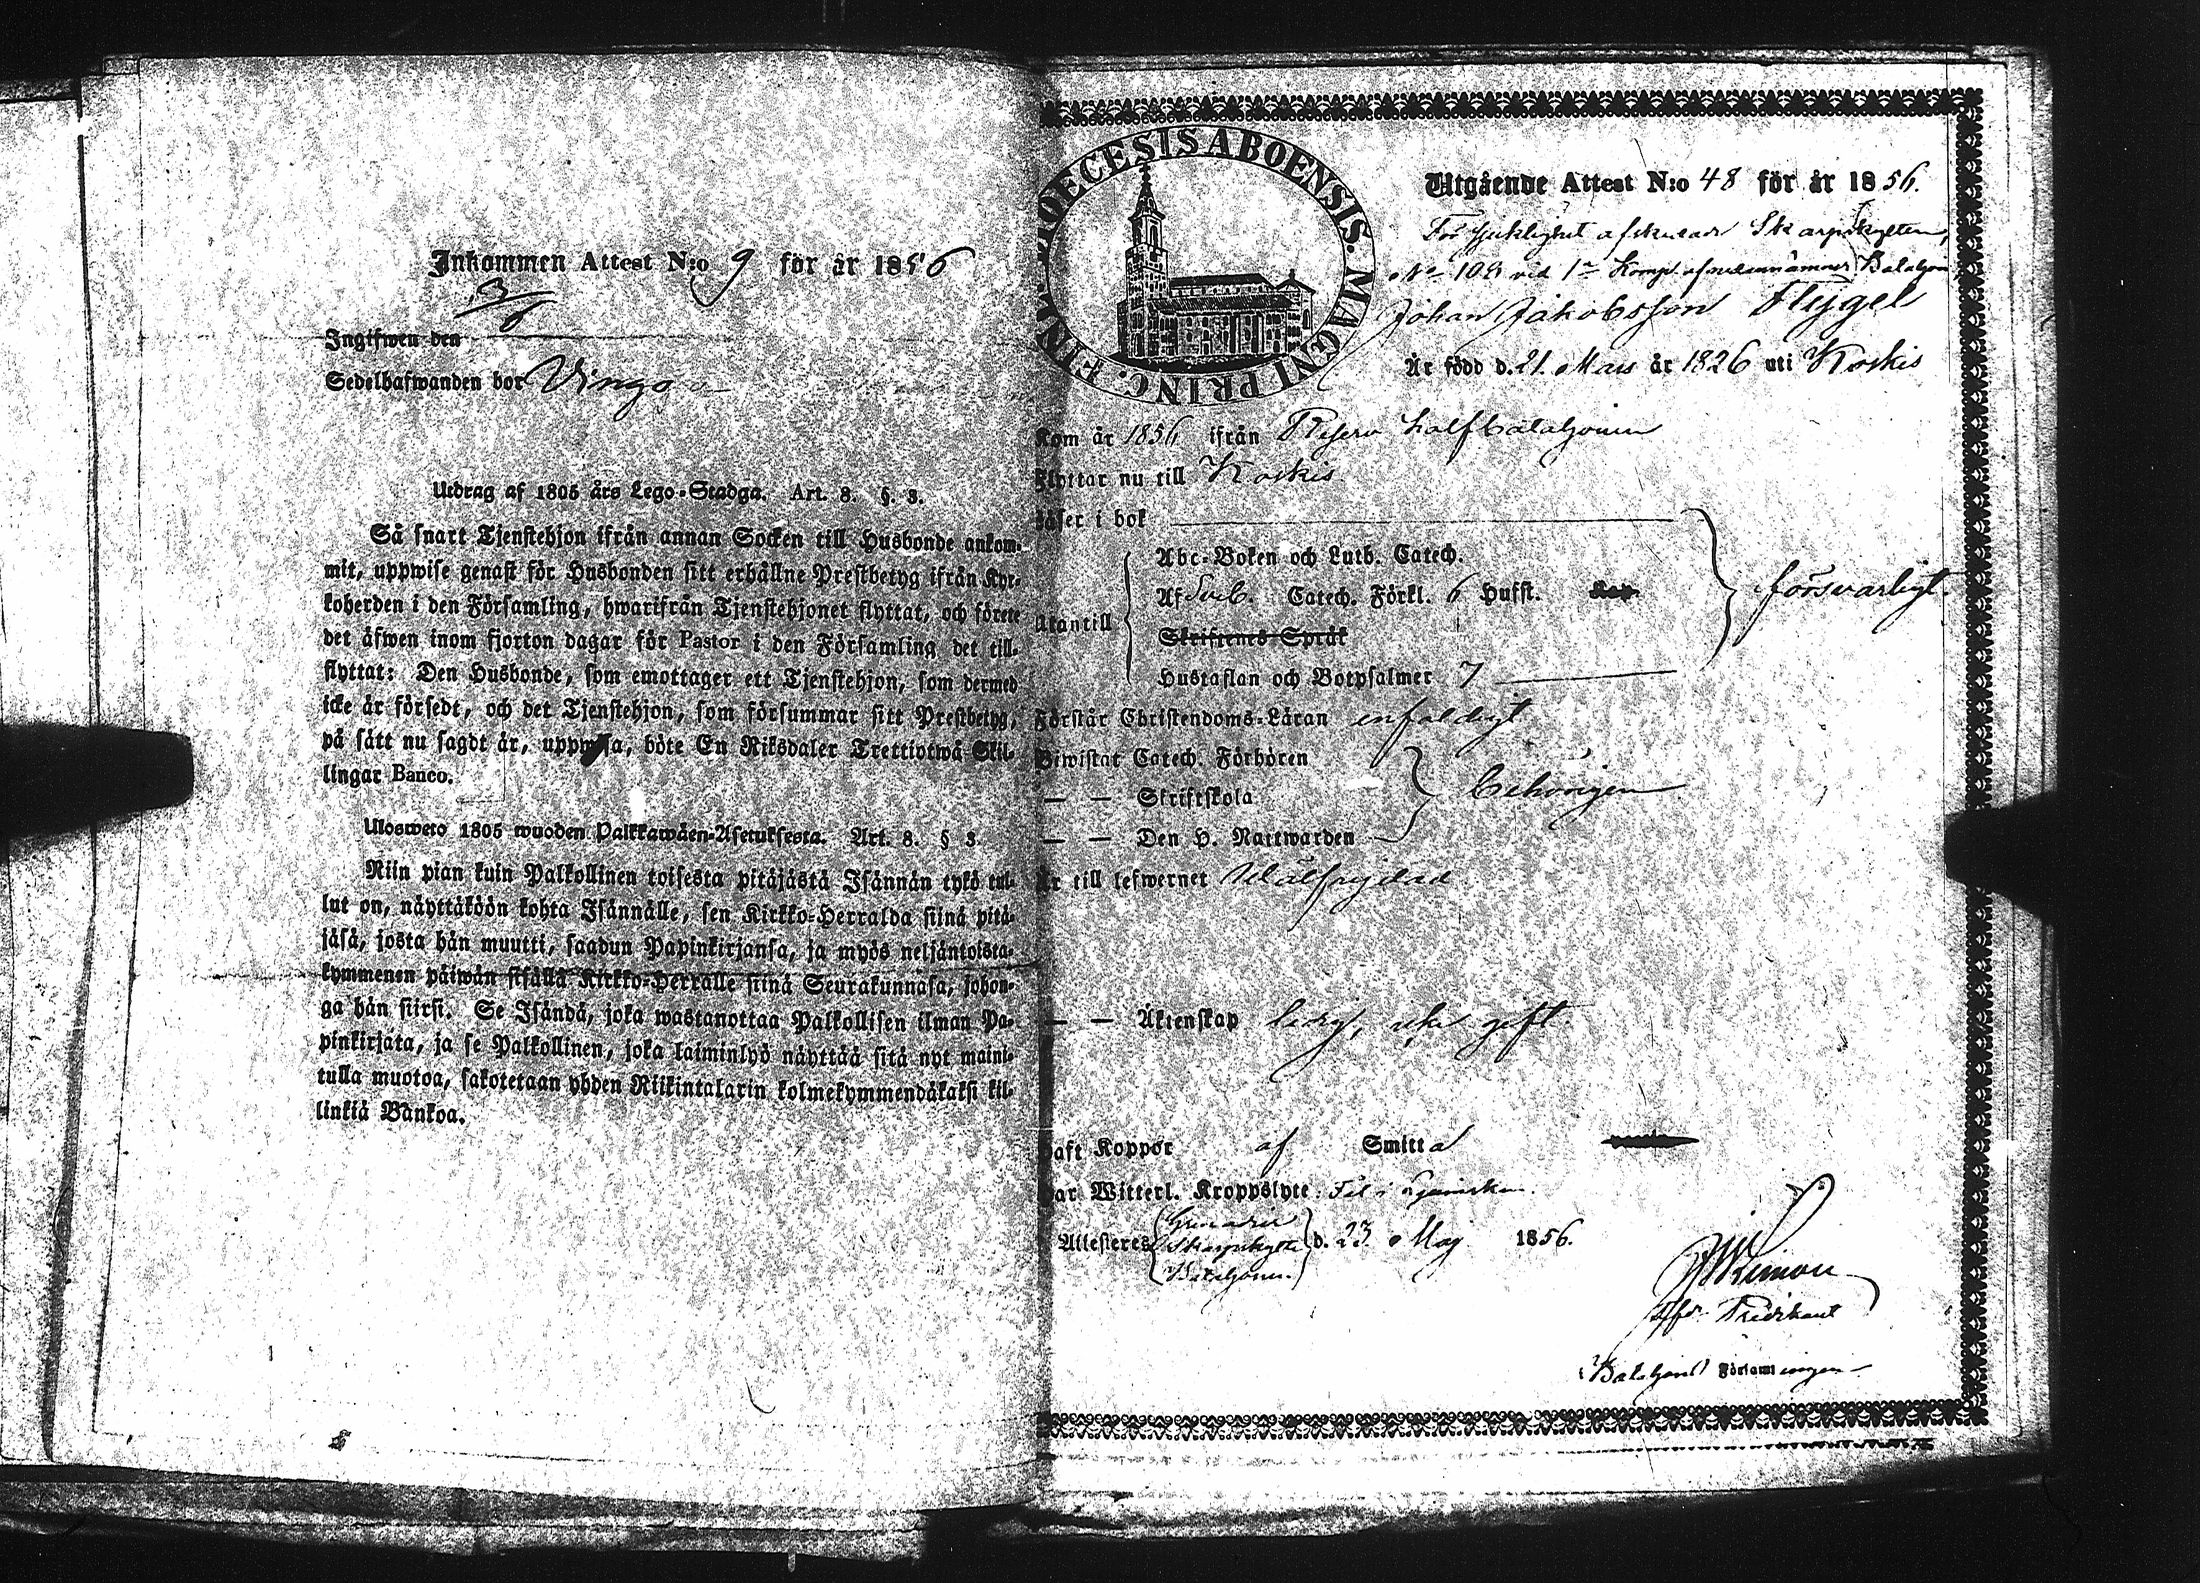 Inkommen Attest N:o 9 för år 1856
3/6
Ingifwen den
Sedelhafwanden bor
Utdrag af 1805 års Lego-Stadga. Art. 8. §. 3.
Så snart Tjenstehjon ifrån annan Socken till Husbonde ankom-
mit, uppwise genast för Husbonden sitt erhållne Prestbetyg ifrån Kyr-
koherden i den Församling, hwarifrån Tjenstehjonet flyttat, och förete
det äfwen inom fjorton dagar för Pastor i den Församling det till-
flyttat: Den Husbonde, som emottager ett Tjenstehjon, som dermed
icke är försedt, och det Tjenstehjon, som försummar sitt Prestbetyg,
på sätt nu sagdt är, uppwisa, böte En Riksdaler Trettiotwå Skil-
lingar Banco.
Ulosweto 1805 wuoden Palkkawäen-Asetuksesta. Art. 8. § 3.
Niin pian kuin Palkollinen toisesta pitäjästä Isännän tykö tul-
lut on, näyttäköön kohta Isännälle, sen Kirkko-Herralda siinä pitä-
jäsä, josta hän muutti, saadun Papinkirjansa, ja myös neljäntoista-
kymmenen päiwän sisällä Kirkko-Herralle siinä Seurakunnasa, johon-
ga hän siirsi. Se Isändä, joka wastanottaa Palkollisen ilman Pa-
pinkirjata, ja se Palkollinen, joka laiminlyö näyttää sitä nyt maini-
tulla muotoa, sakotetaan yhden Riikintalarin kolmekymmendäkaksi kil-
linkiä Bankoa.
DIOECESIS ABOENSIS. MAGNI PRINC. FINL.
Utgående Attest N:o 48 för år 1856.
För sjuklighet afskedade Skarpskytten,
No 108 vid 1a Komp. af nedannämnde Bataljon
Johan Jakobsson Flygel
Är född d. 21. Mars år 1826 uti Koskis
Kom år 1856 ifrån Reserv halfbataljonen
Flyttar nu till Koskis
Läser i bok
Abc-Boken och Luth. Catech.
Utantill Af Sveb. Catech. Förkl. 6 Hufst. Kap. försvarligt.
Skriftenes Språk
Hustaflan och Botpsalmer 7
Förstår Christendoms-Läran enfaldigt
Biwistat Catech. Förhören
— — Skriftskola behörigen
— — Den H. Nattwarden
Är till lefwernet Wälfrejdad
— — Äktenskap ledig, icke gift.
Haft Koppor af Smitta
Har Witterl. Kroppslyte: Fel i
Attesteres Grenadier Skarpskytte Bataljonen d. 23 Maj 1856.
Predikant
Bataljons Församlingen